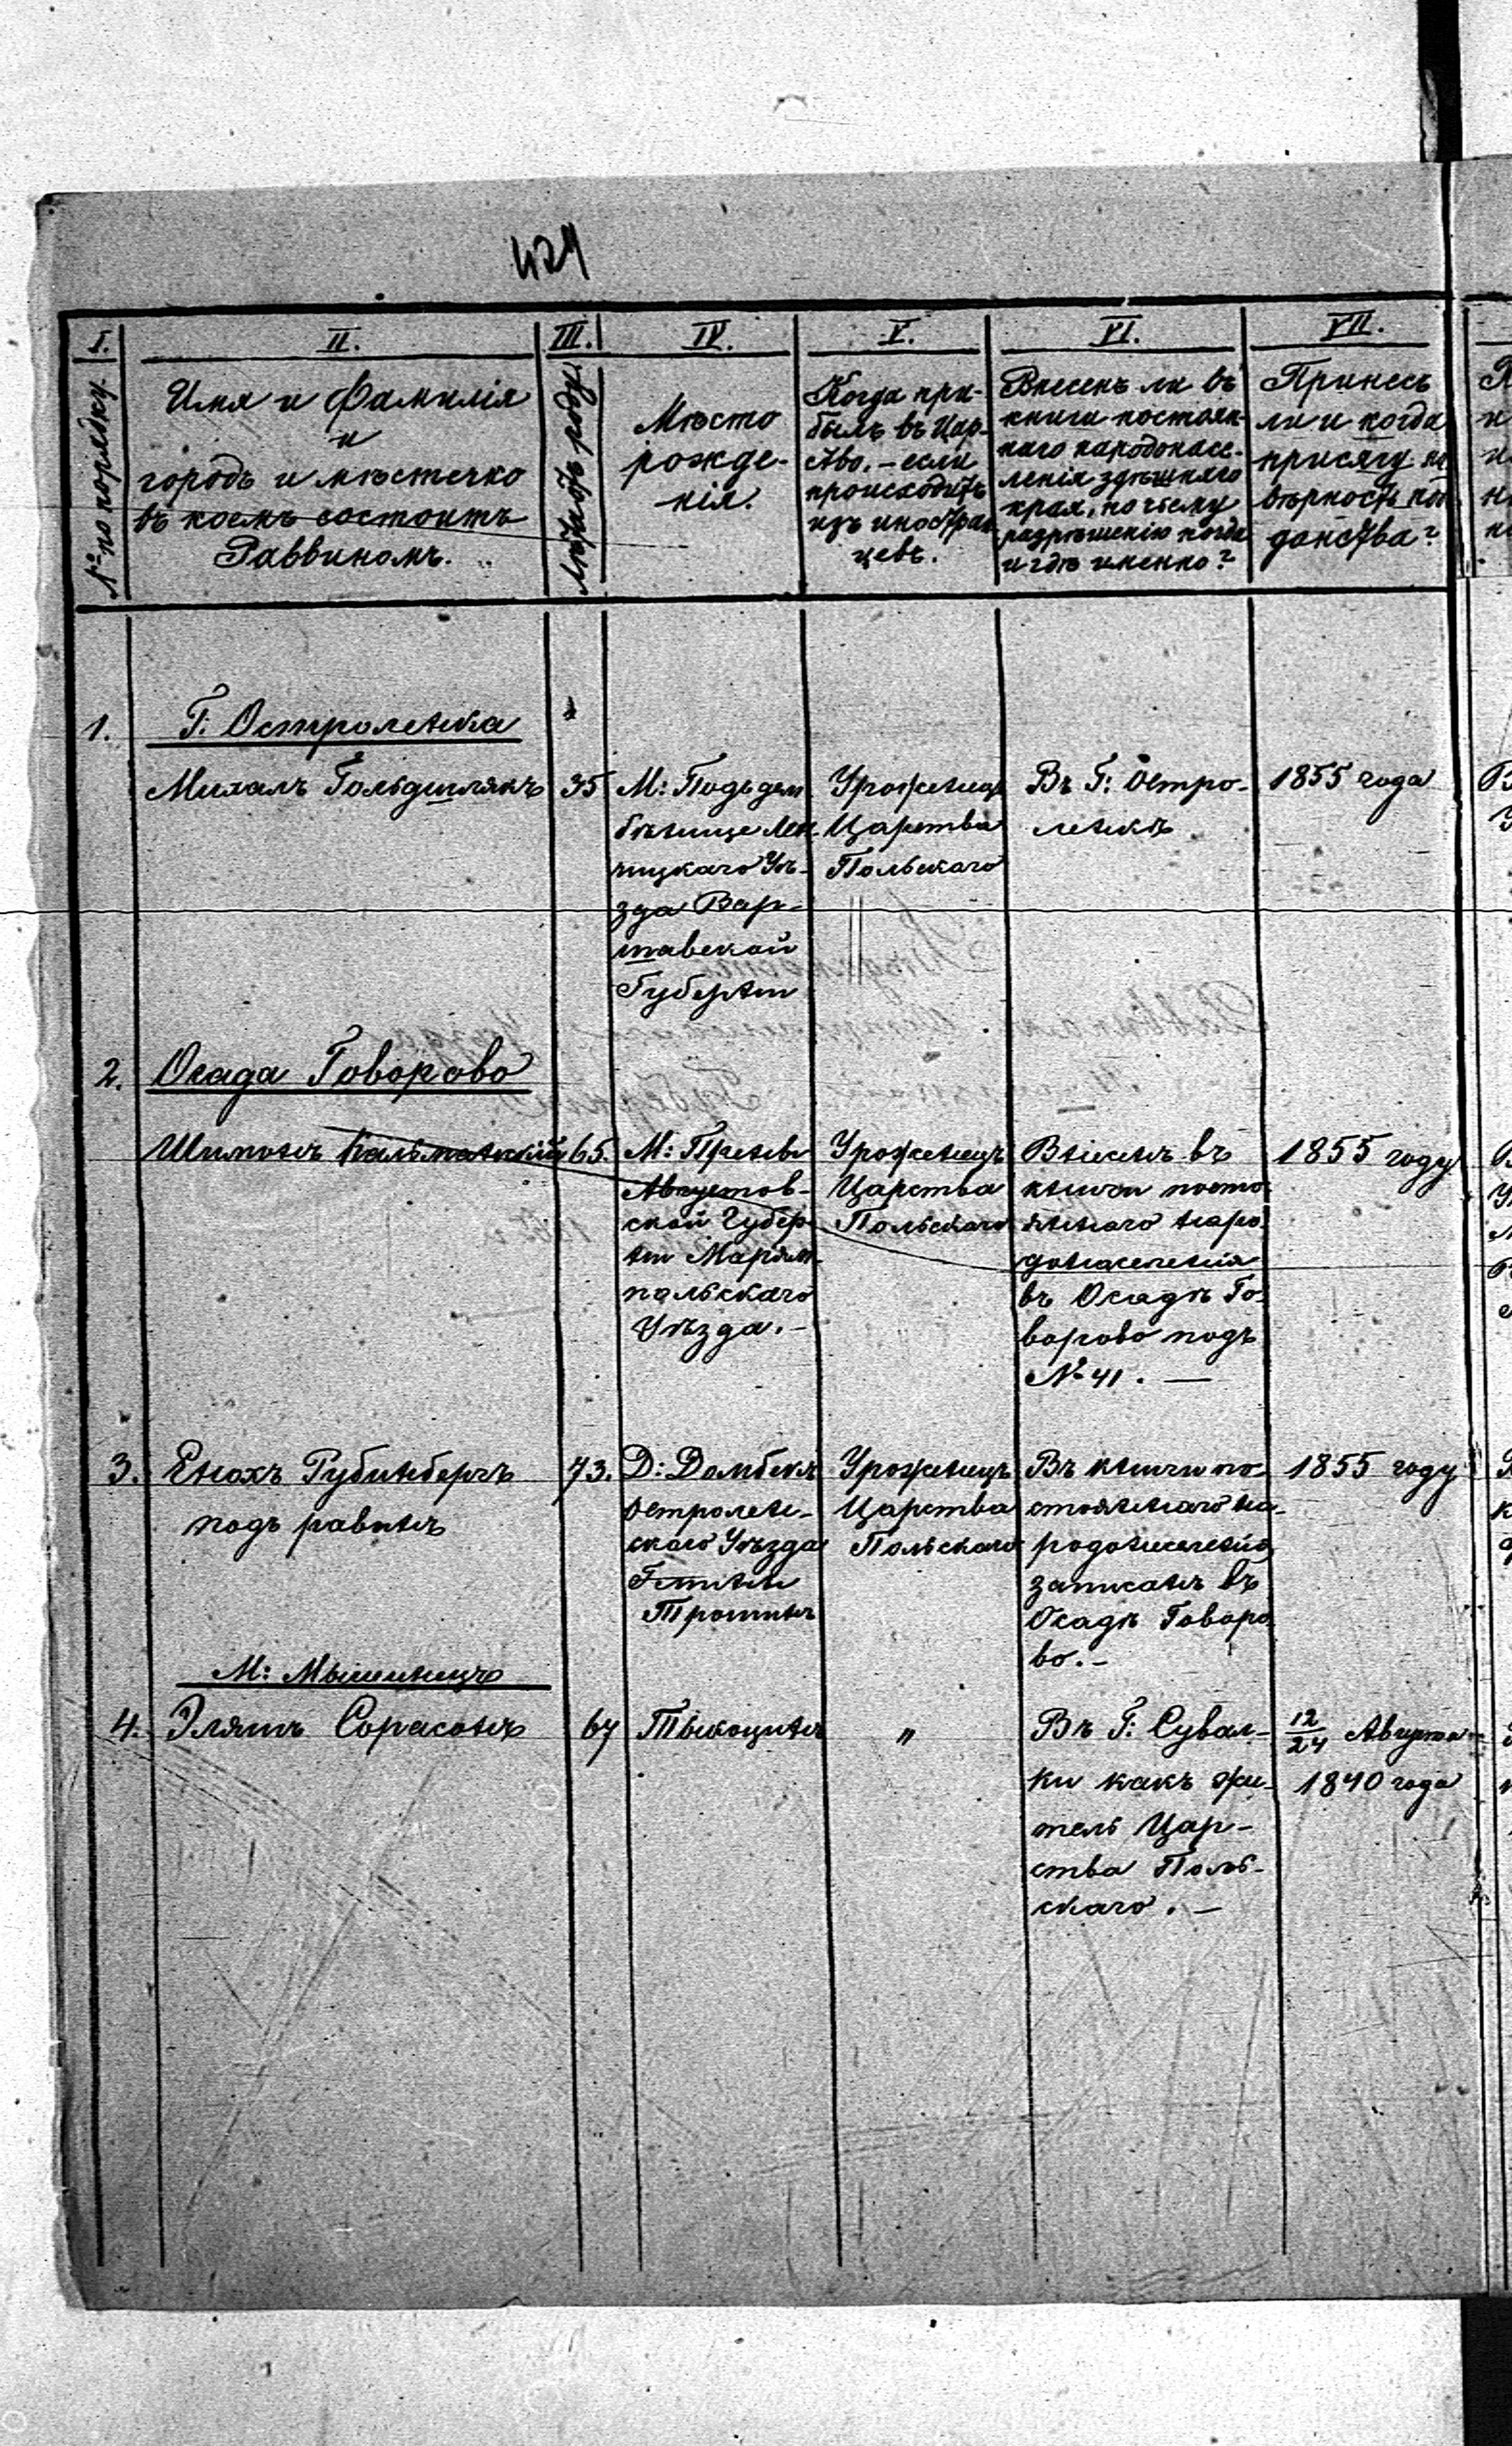 429
I.
№ по порядку.
II.
Имя и Фамилія
и
городъ и мѣстечко
въ коемъ состоитъ
Раввиномъ.
III.
Лѣтъ отъ роду.
IV.
Мѣсто
рожде-
нія.
V.
Когда при-
былъ въ Цар-
ство, – если
происходитъ
изъ иностран
цевъ.
VI.
Внесенъ ли въ
книги постоян-
наго народонасе-
ленія здѣшняго
края, по чьему
разрѣшенію когда
и гдѣ именно?
VII.
Принесъ
ли и когда
присягу на
вѣрность под
данства?
1.
Г: Остроленка
Михалъ Гольдшлякъ
35
М: Подъдем
бѣнице Лен
чицкаго Уѣ-
зда Вар-
шавской
Губерніи
Уроженецъ
Царства
Польскаго
Въ Г: Остро-
ленкѣ
1855 года
2.
Осада Говорово
Шимонъ Кальманскій
65.
М: Пренъ
Августов-
ской Губер
ніи Маріам-
польскаго
Уѣзда. –
Уроженецъ
Царства
Польскаго
Внесенъ въ
книги посто
яннаго наро
донаселенія
въ Осадѣ Го-
ворово подъ
№ 41. —
1855 году
3.
Енохъ Рубинбергъ
подъ равинъ
73.
Д: Домбекъ
Остролен-
скаго Уѣзда
Гмины
Трошинъ
Уроженецъ
Царства
Польскаго
Въ книги по-
стояннаго на-
родонаселенія
записанъ въ
Осадѣ Говоро
во. –
1855 году
М: Мышинецъ
4.
Эляшъ Сорасонъ
67
Тыкоцинъ
"
Въ Г: Сувал-
ки какъ жи-
тель Цар-
ства Поль-
скаго. –
12/24 Августа
1840 года